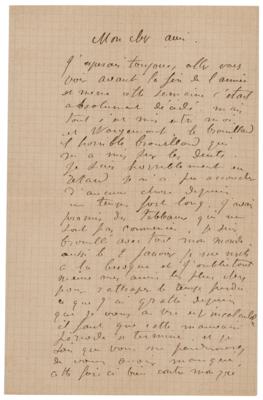 Mon cher ami.
J'espérais toujours aller vous
voir avant la fin de l'année
et même cette semaine c'était
absolument décidé mais
tout s'est mis entre nous
et Wargemont le brouillard
l'horrible brouillard qui
m'a mis sur les dents.
Je suis horriblement en
retard je n'ai pu accoucher
d'aucune chose depuis
un temps fort long, j'avais
promis des tableaux qui ne
sont pas commencés, je suis
brouillé avec tout mon monde
aussi le 2 janvier je me mets
à la besogne et j'oublierai
même mes amis les plus chers
pour rattraper le temps perdu
ce que j'ai gratté depuis
que je vous ai vu est incalculable
il faut que cette mauvaise
période se termine, et je
sais que vous me pardonnerez
de vous avoir manqué
cette fois-ci bien contre mon gré